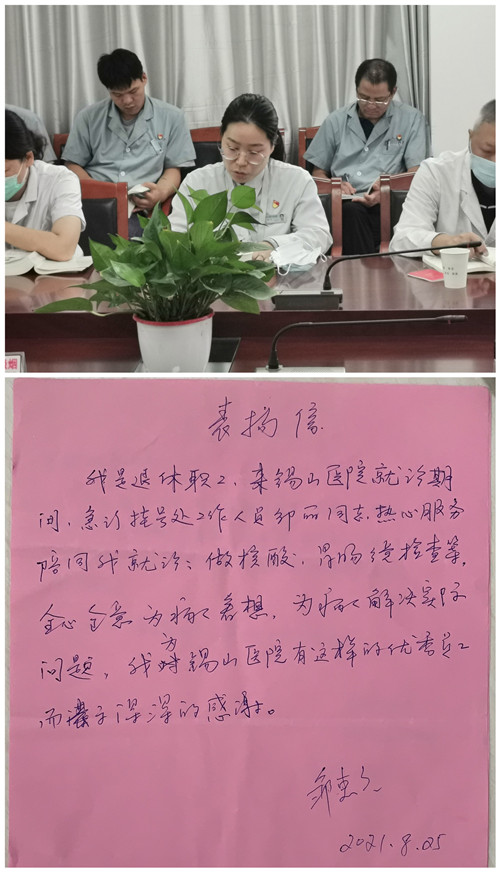 表扬信
我是退休职工,来锡山医院就诊期
间,急诊挂号处工作人员邹丽同志热心服务
陪同我就诊:做核酸、胃肠镜检查等,
全心全意为病人着想,为病人解决实际
问题,我方对锡山医院有这样的优秀员工
而表示深深的感谢。
2021.8.25